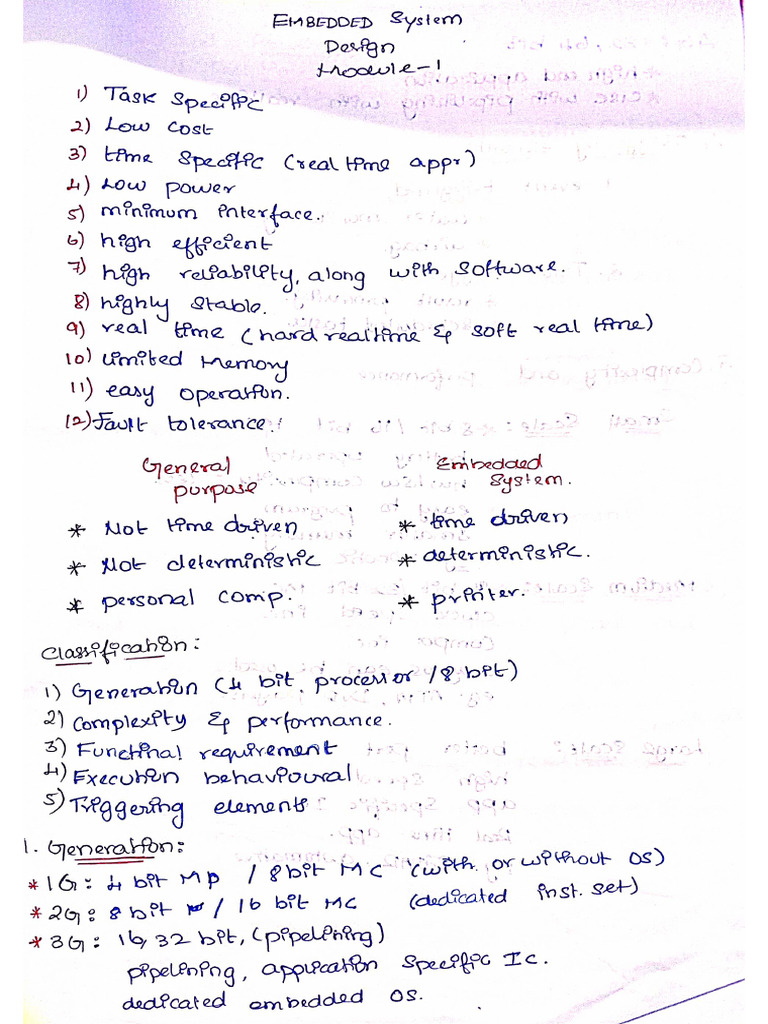 EMBEDDED System
Design
Module-1
1) Task Specific
2) Low cost
3) time specific (real time appr)
4) Low power
5) minimum interface.
6) high efficient
7) high reliability, along with software.
8) highly stable.
9) real time (hard realtime & soft real time)
10) Limited Memory
11) easy operation.
12) Fault tolerance.
General purpose
Embedded System.
* Not time driven * time driven
* Not deterministic * deterministic.
* personal comp. * printer.
Classification:
1) Generation (4 bit, processor /8 bit)
2) Complexity & performance.
3) Functinal requirement
4) Execution behavioural
5) Triggering elements
1. Generation:
* 1G: 4 bit MP / 8bit MC (with or without OS)
* 2G: 8 bit / 16 bit MC (dedicated inst. set)
* 3G: 16, 32 bit, (pipelining)
pipelining, application specific Ic.
dedicated embedded OS.